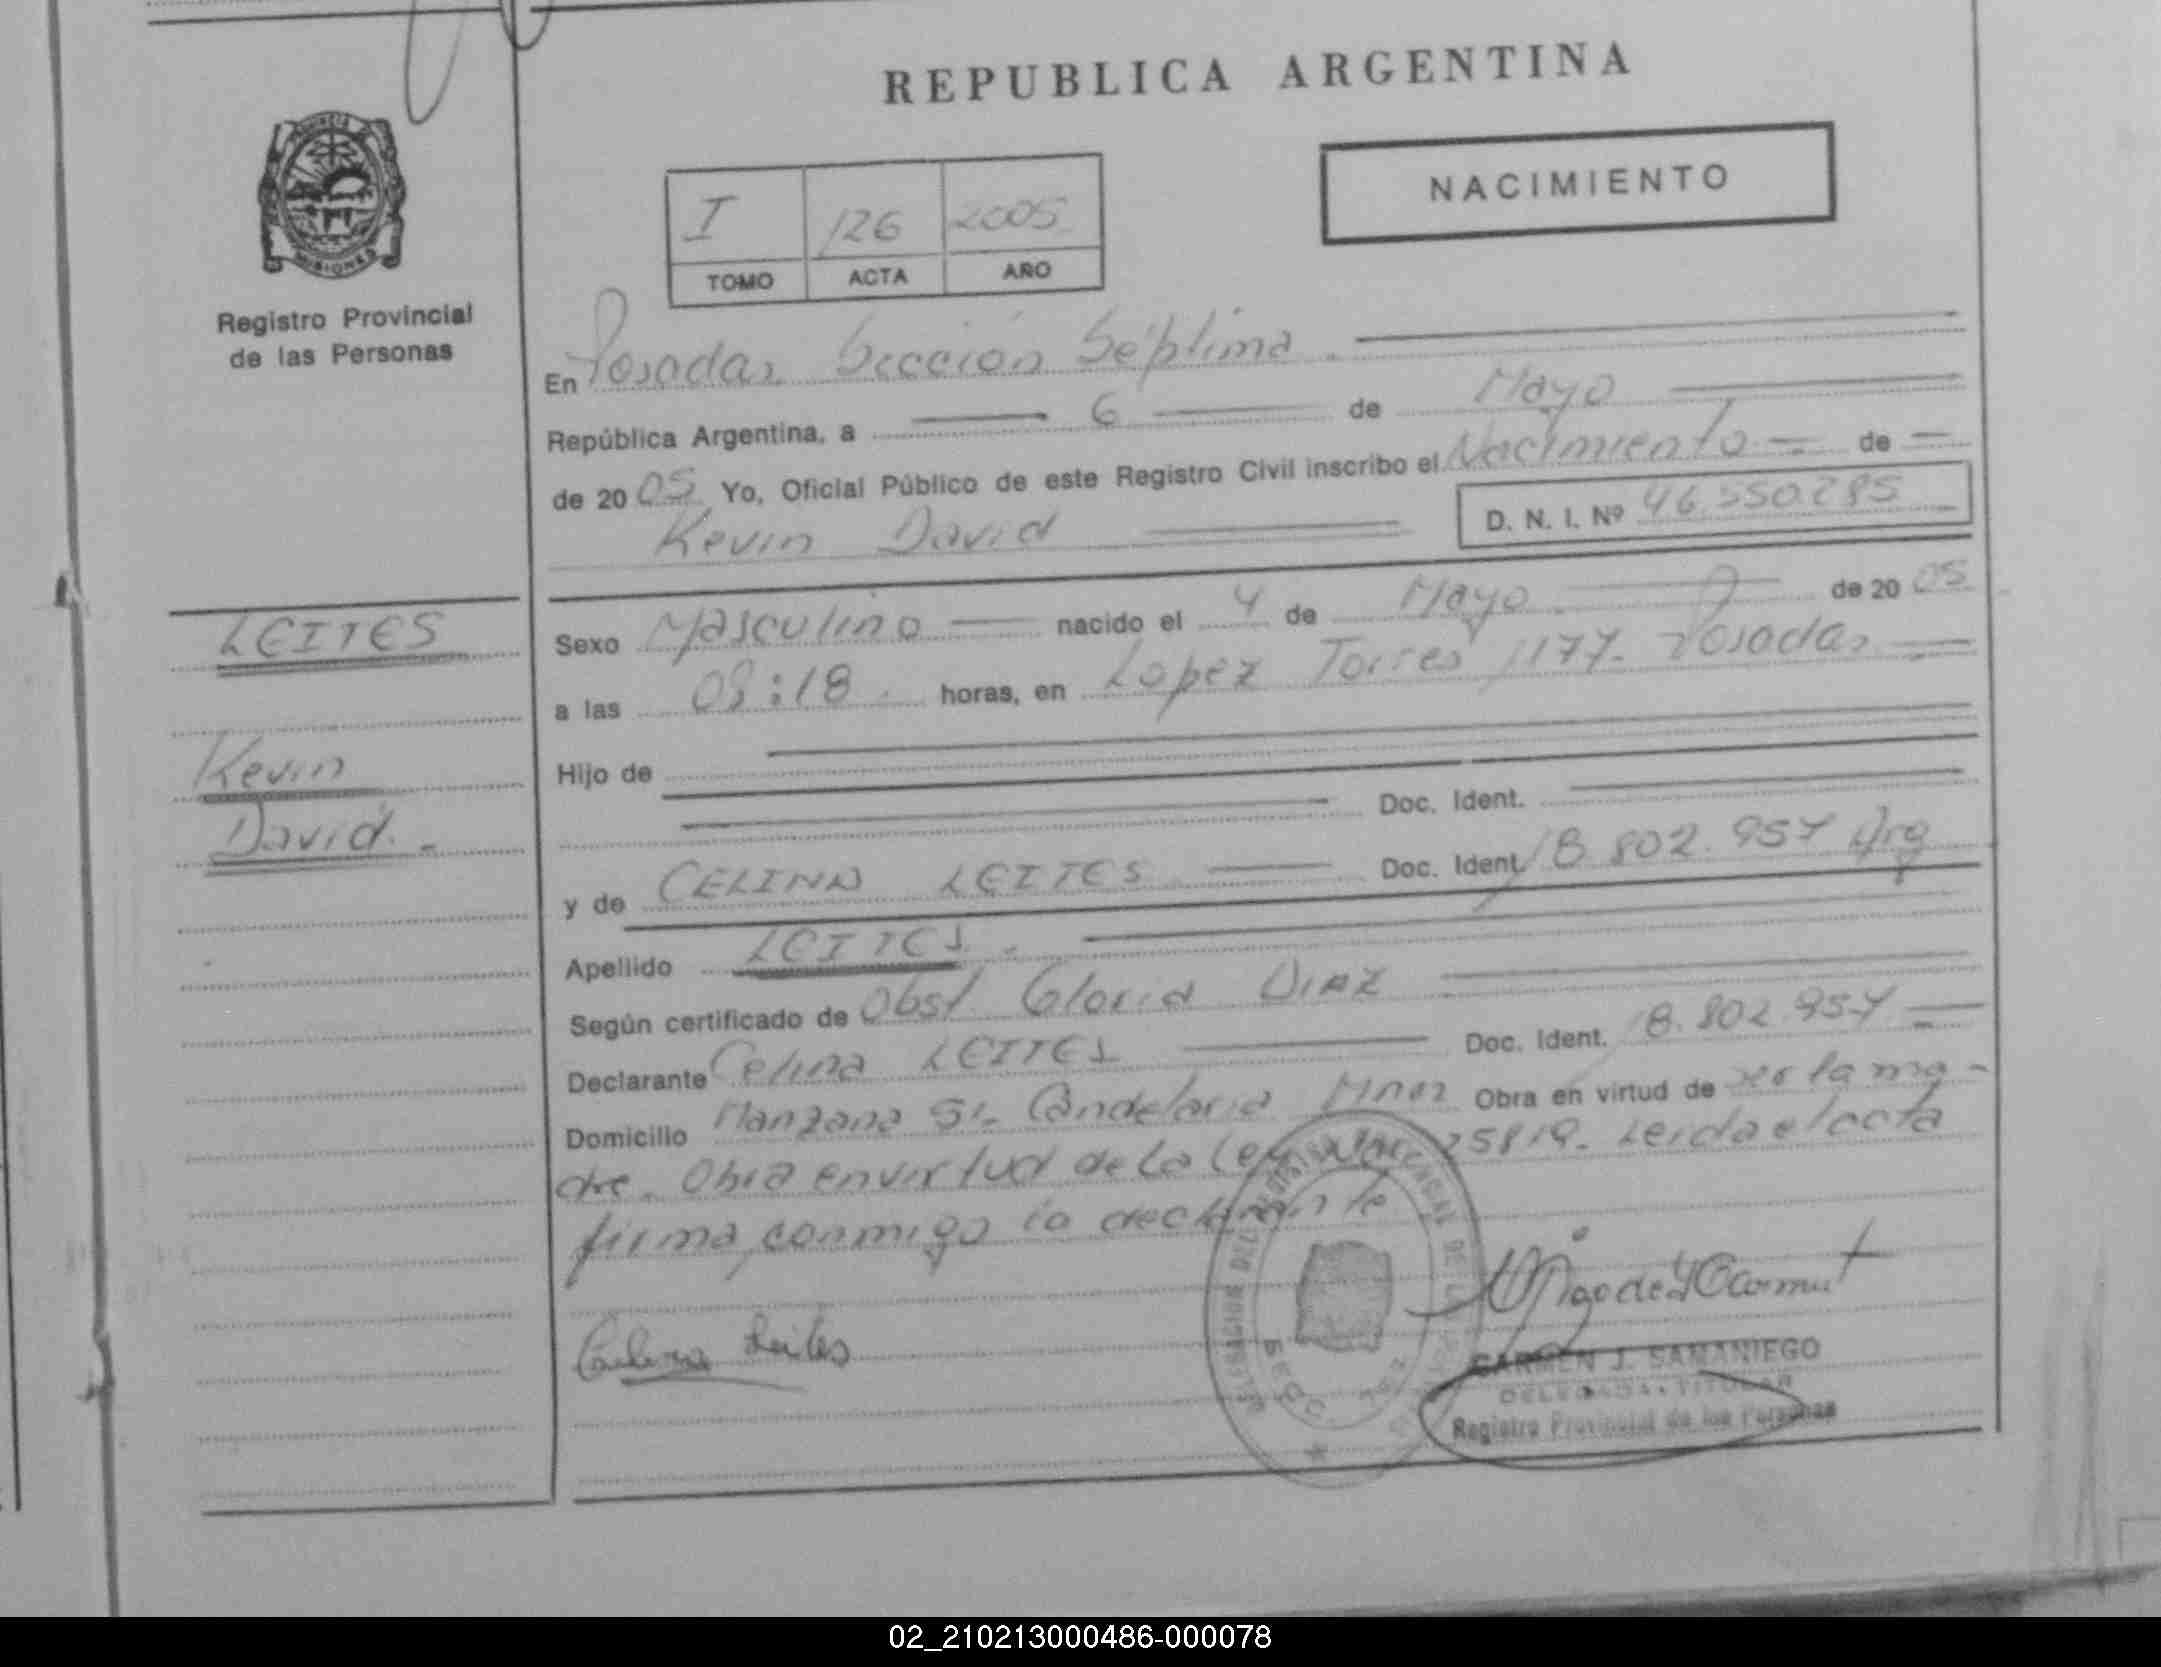 REPUBLICA ARGENTINA
NACIMIENTO
I 126 2005
TOMO ACTA AÑO
PROVINCIA DE
MISIONES
Registro Provincial
de las Personas
En Posadas Sección Séptima
República Argentina, a 6 de Mayo
de 20 05 Yo, Oficial Público de este Registro Civil inscribo el Nacimiento de
Kevin David
D. N. I. Nº 46.550.285
LEITES
Kevin
David.
Sexo Masculino nacido el 4 de Mayo de 20 05
a las 08:18 horas, en Lopez Torres 1177. Posadas
Hijo de
Doc. Ident.
y de CELINA LEITES Doc. Ident. 18.802.957 Arg
Apellido LEITES
Según certificado de Obst. Gloria DIAZ
Declarante Celina LEITES Doc. Ident. 18.802.957
Domicilio Manzana Candelaria Mnes Obra en virtud de ser la ma-
dre. Obra en virtud de la Ley 25819. Leida el acta
firma conmigo la declarante
Celina Leites
CARMEN J. SAMANIEGO
DELEGADA TITULAR
Registro Provincial de las Personas
02_210213000486-000078